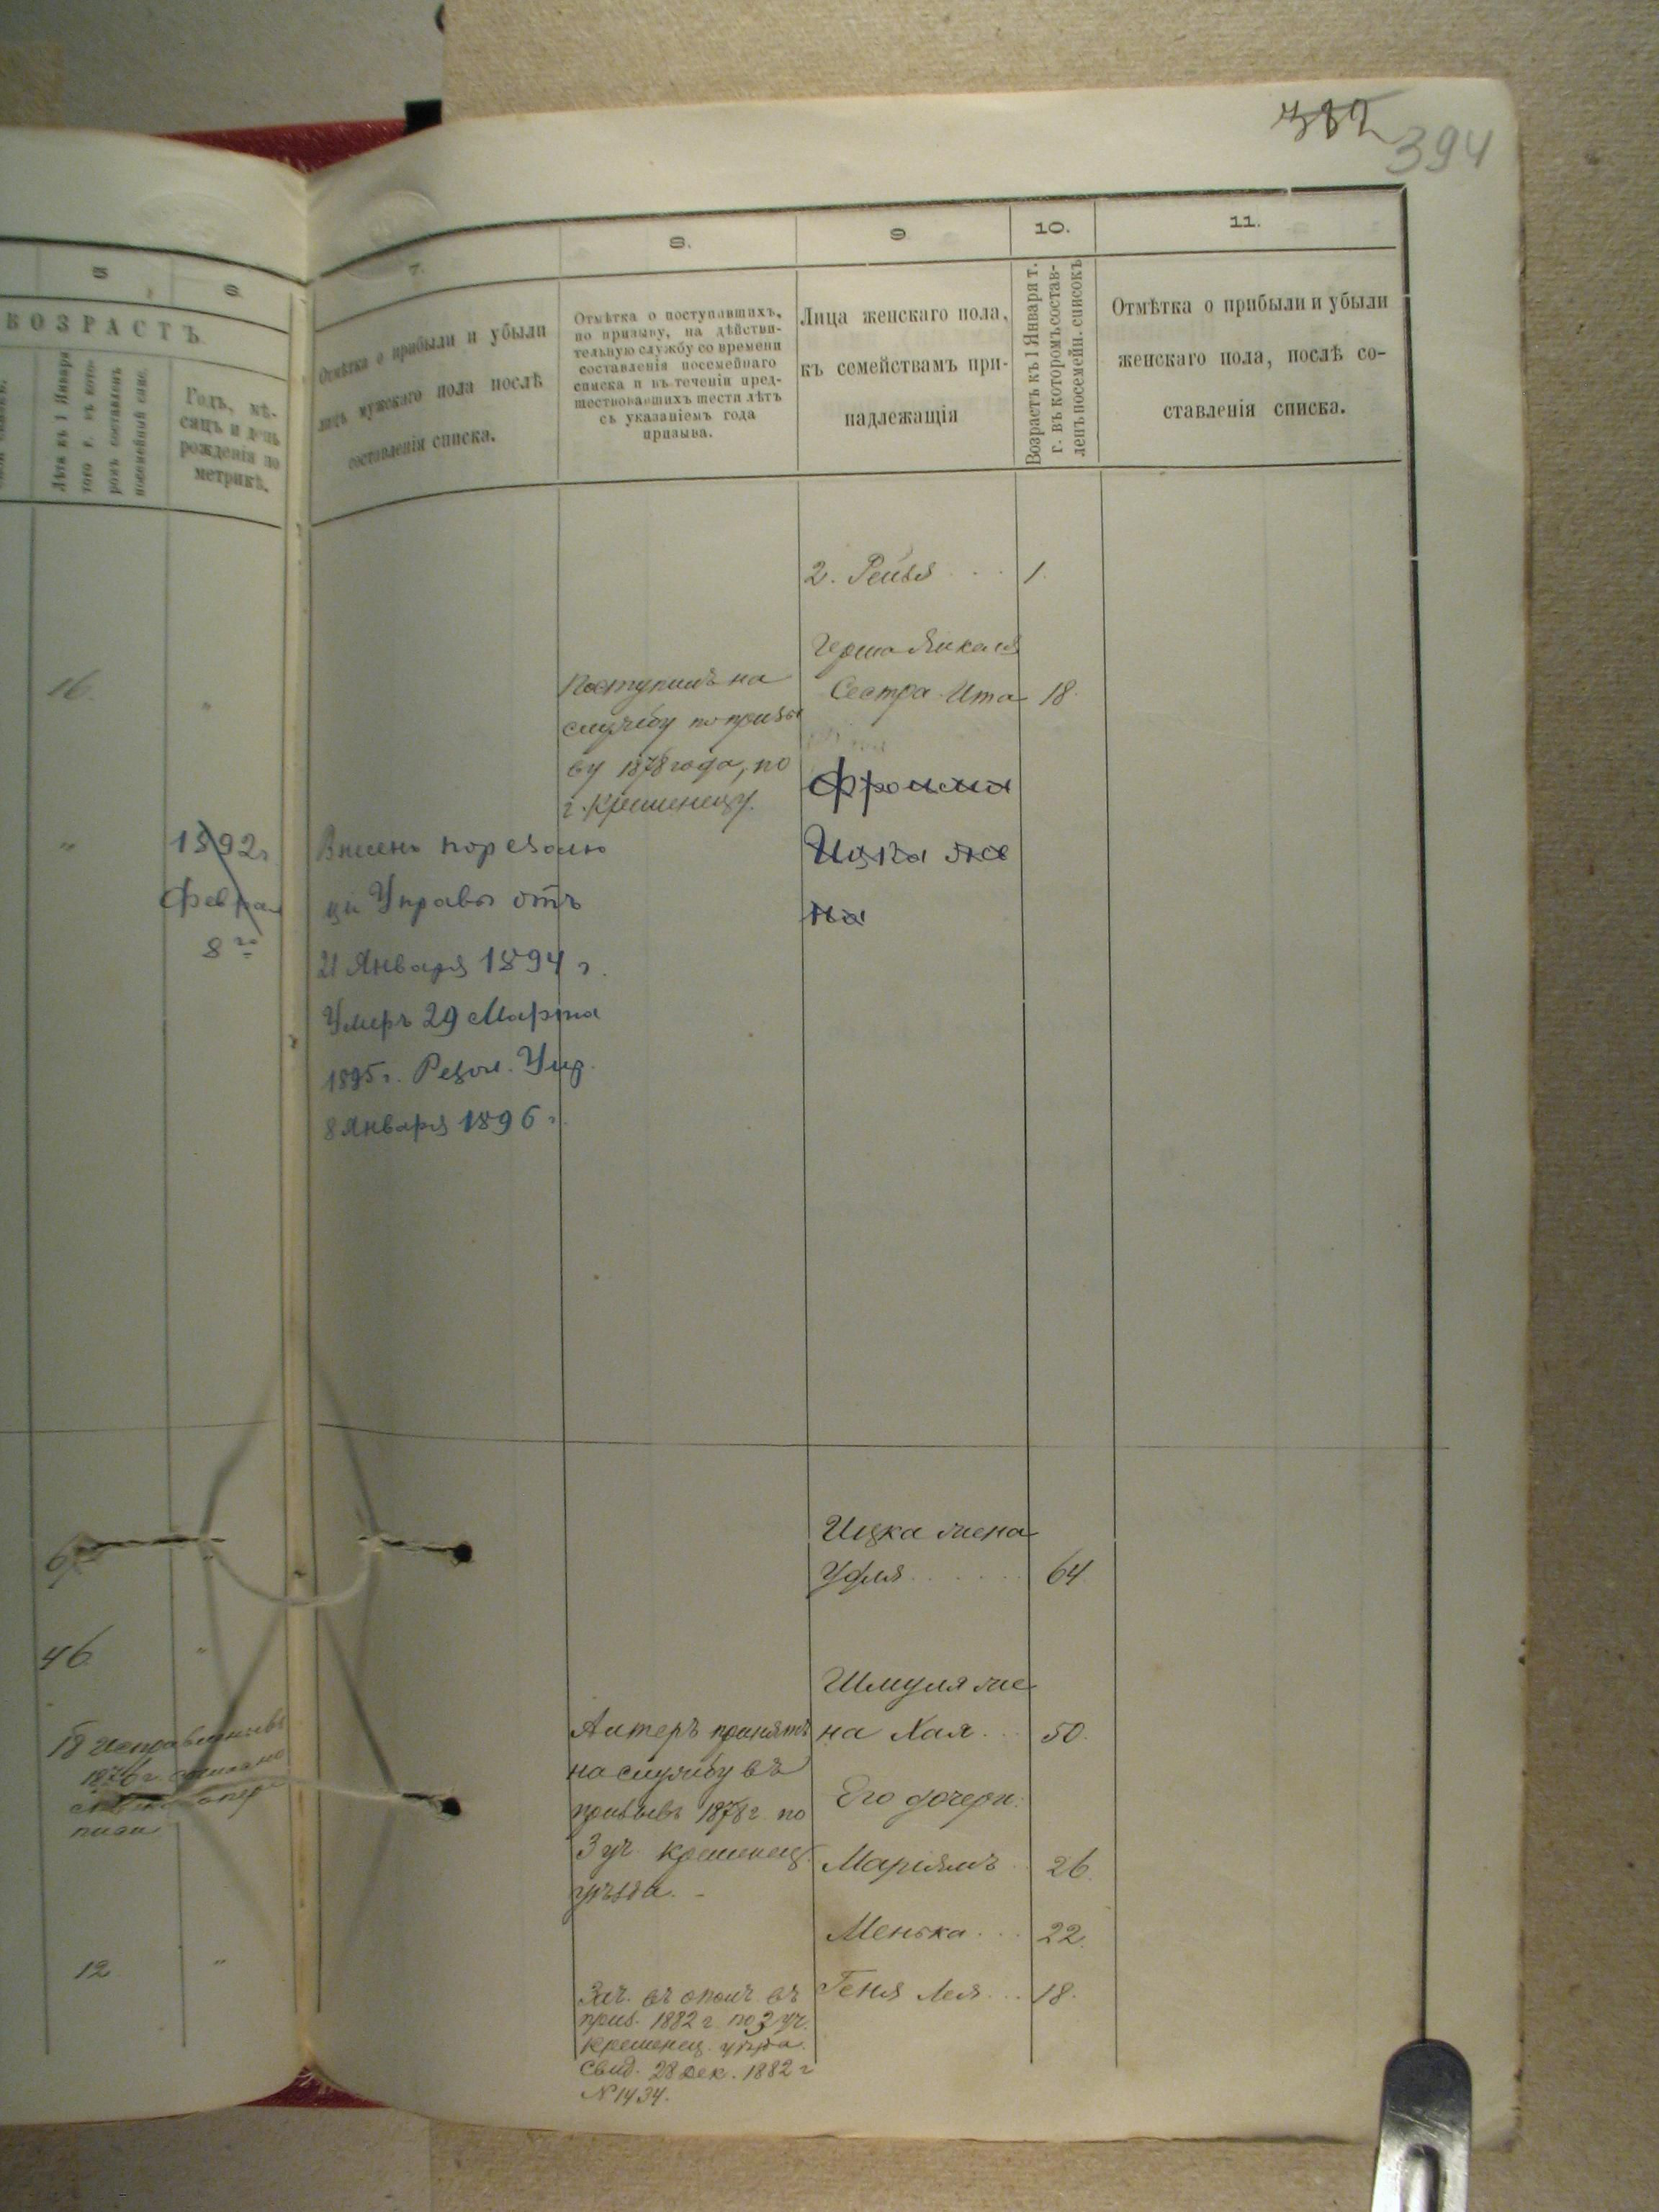 382
394
5
6
7.
8.
9
10.
11.
ВОЗРАСТЪ
Лѣта къ 1 Января
того г. въ кото-
ромъ составленъ
посемейный спис.
Годъ, мѣ-
сяцъ и день
рожденія по
метрикѣ.
Отмѣтка о прибыли и убыли
лицъ мужскаго пола послѣ
составленія списка.
Отмѣтка о поступившихъ,
по призыву, на дѣйстви-
тельную службу со времени
составленія посемейнаго
списка и въ теченіи пред-
шествовавшихъ шести лѣтъ
съ указаніемъ года
призыва.
Лица женскаго пола,
къ семействамъ при-
надлежащія
Возрастъ къ 1 Января т.
г. въ которомъ состав-
ленъ посемейн. списокъ
Отмѣтка о прибыли и убыли
женскаго пола, послѣ со-
ставленія списка.
2. Рейзя 1.
16.
Поступилъ на
службу по призы
ву 1878 года, по
г. Кременецу.
Герша Янкеля
Сестра Ита 18.
Фроима
Ицка же
на
"
1892 г
Феврал
8 го
Внесенъ по резолю
ціи Управы отъ
21 Января 1894 г.
Умеръ 29 Марта
1895 г. Резол. Упр.
8 Января 1896 г.
Ицка жена
64
46
"
Шмуля же
на Хая 50.
Его дочери:
Маріямъ 26.
Менька 22.
Геня Лея 18.
18
1876 г.
Алтеръ принятъ
на службу въ
призывъ 1878 г. по
3 уч. Кременец.
уѣзда.
12
"
Зач. въ ополч. въ
приз. 1882 г. по 3 уч.
Кременец. уѣзда.
Свид. 28 Дек. 1882 г
№ 1434.